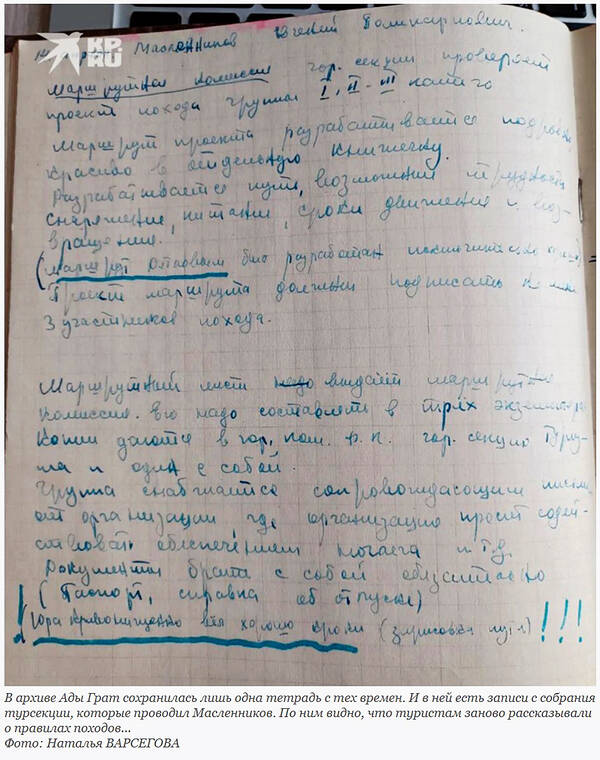 KP.RU
Масленников Евгений Поликарпович.
Маршрутная комиссия гор. секции проверяет
проект похода группы I, II - III
Маршрут проекта разрабатывается подробно
красиво в отдельную книжечку.
Разрабатывается пути, возможные трудности
снаряжение, питание, сроки движения и воз-
вращения.
(Маршрут Отортен был разработан
Проект маршрута должны подписать
3 участников похода.
Маршрутный лист надо выдаёт маршрутная
комиссия. Его надо составлять в трёх экземплярах
Копии даются в гор. ком. ф.к. гор. секцию Туриз-
ма и один с собой.
Группа снабжается сопроводающим письмом
от организации, где организацию просят содей-
ствовать обеспечением ночлега и т.д.
Документы брать с собой обязательно
(Паспорт, справка об отпуске)
! Юра Кривонищенко вёл хорошо кроки (зарисовка пути) !!!
В архиве Ады Грат сохранилась лишь одна тетрадь с тех времен. И в ней есть записи с собрания
турсекции, которые проводил Масленников. По ним видно, что туристам заново рассказывали
о правилах походов...
Фото: Наталья ВАРСЕГОВА